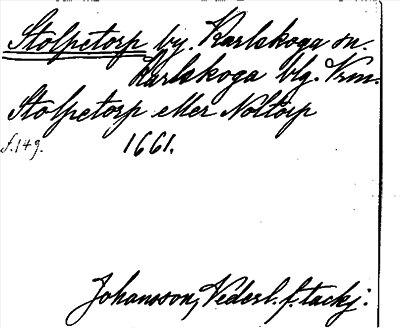 Stolpetorp by. Karlskoga sn.
Karlskoga blg. Vrm.
Stolpetorp eller Noltorp
f. 149. 1661.
Johansson, Vederl. f. tackj.